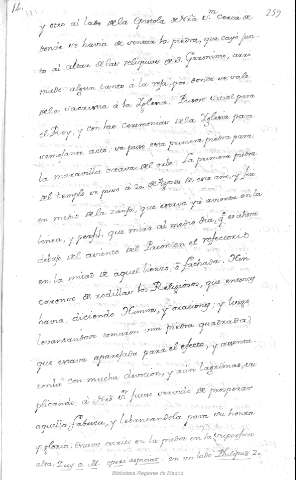 14.
259
y otro al lado de la Epistola de Nra Sra cerca de
donde se havia de sentar la piedra, que cayo jun
to al altar de las reliquias de S. Geronimo, arri
mado algun tanto à la por donde se sale
de la Sacristia à la Iglesia. Fueron
el Rey, y con las ceremonias de la Iglesia para
semejante acto, se puso esta primera piedra para
la maravilla octava del orbe. La primera piedra
del templo se puso à 20 de Agosto de ese año, y fue
en medio de la zanja, que estava yà abierta en la
linea, y perfil, que mira al medio dia, y es ahora
debajo del asiento del Prior en el refectorio
en la mitad de aquel lienzo, ò fachada. Hin
caronse de rodillas los Religiosos, que entonces
havia, diciendo Himnos, y oraciones, y luego
levantandose tomaron una piedra quadrada
que estava aparejada para el efecto, y asenta
ronla con mucha devocion, y aun lagrimas, su
plicando à Dios fuese servido de prosperar
aquella fabrica, y levantandola para su honra
y gloria. havia escrito en la piedra en la superficie
alta. en un lado Philipus 2.
Biblioteca Regional de Madrid